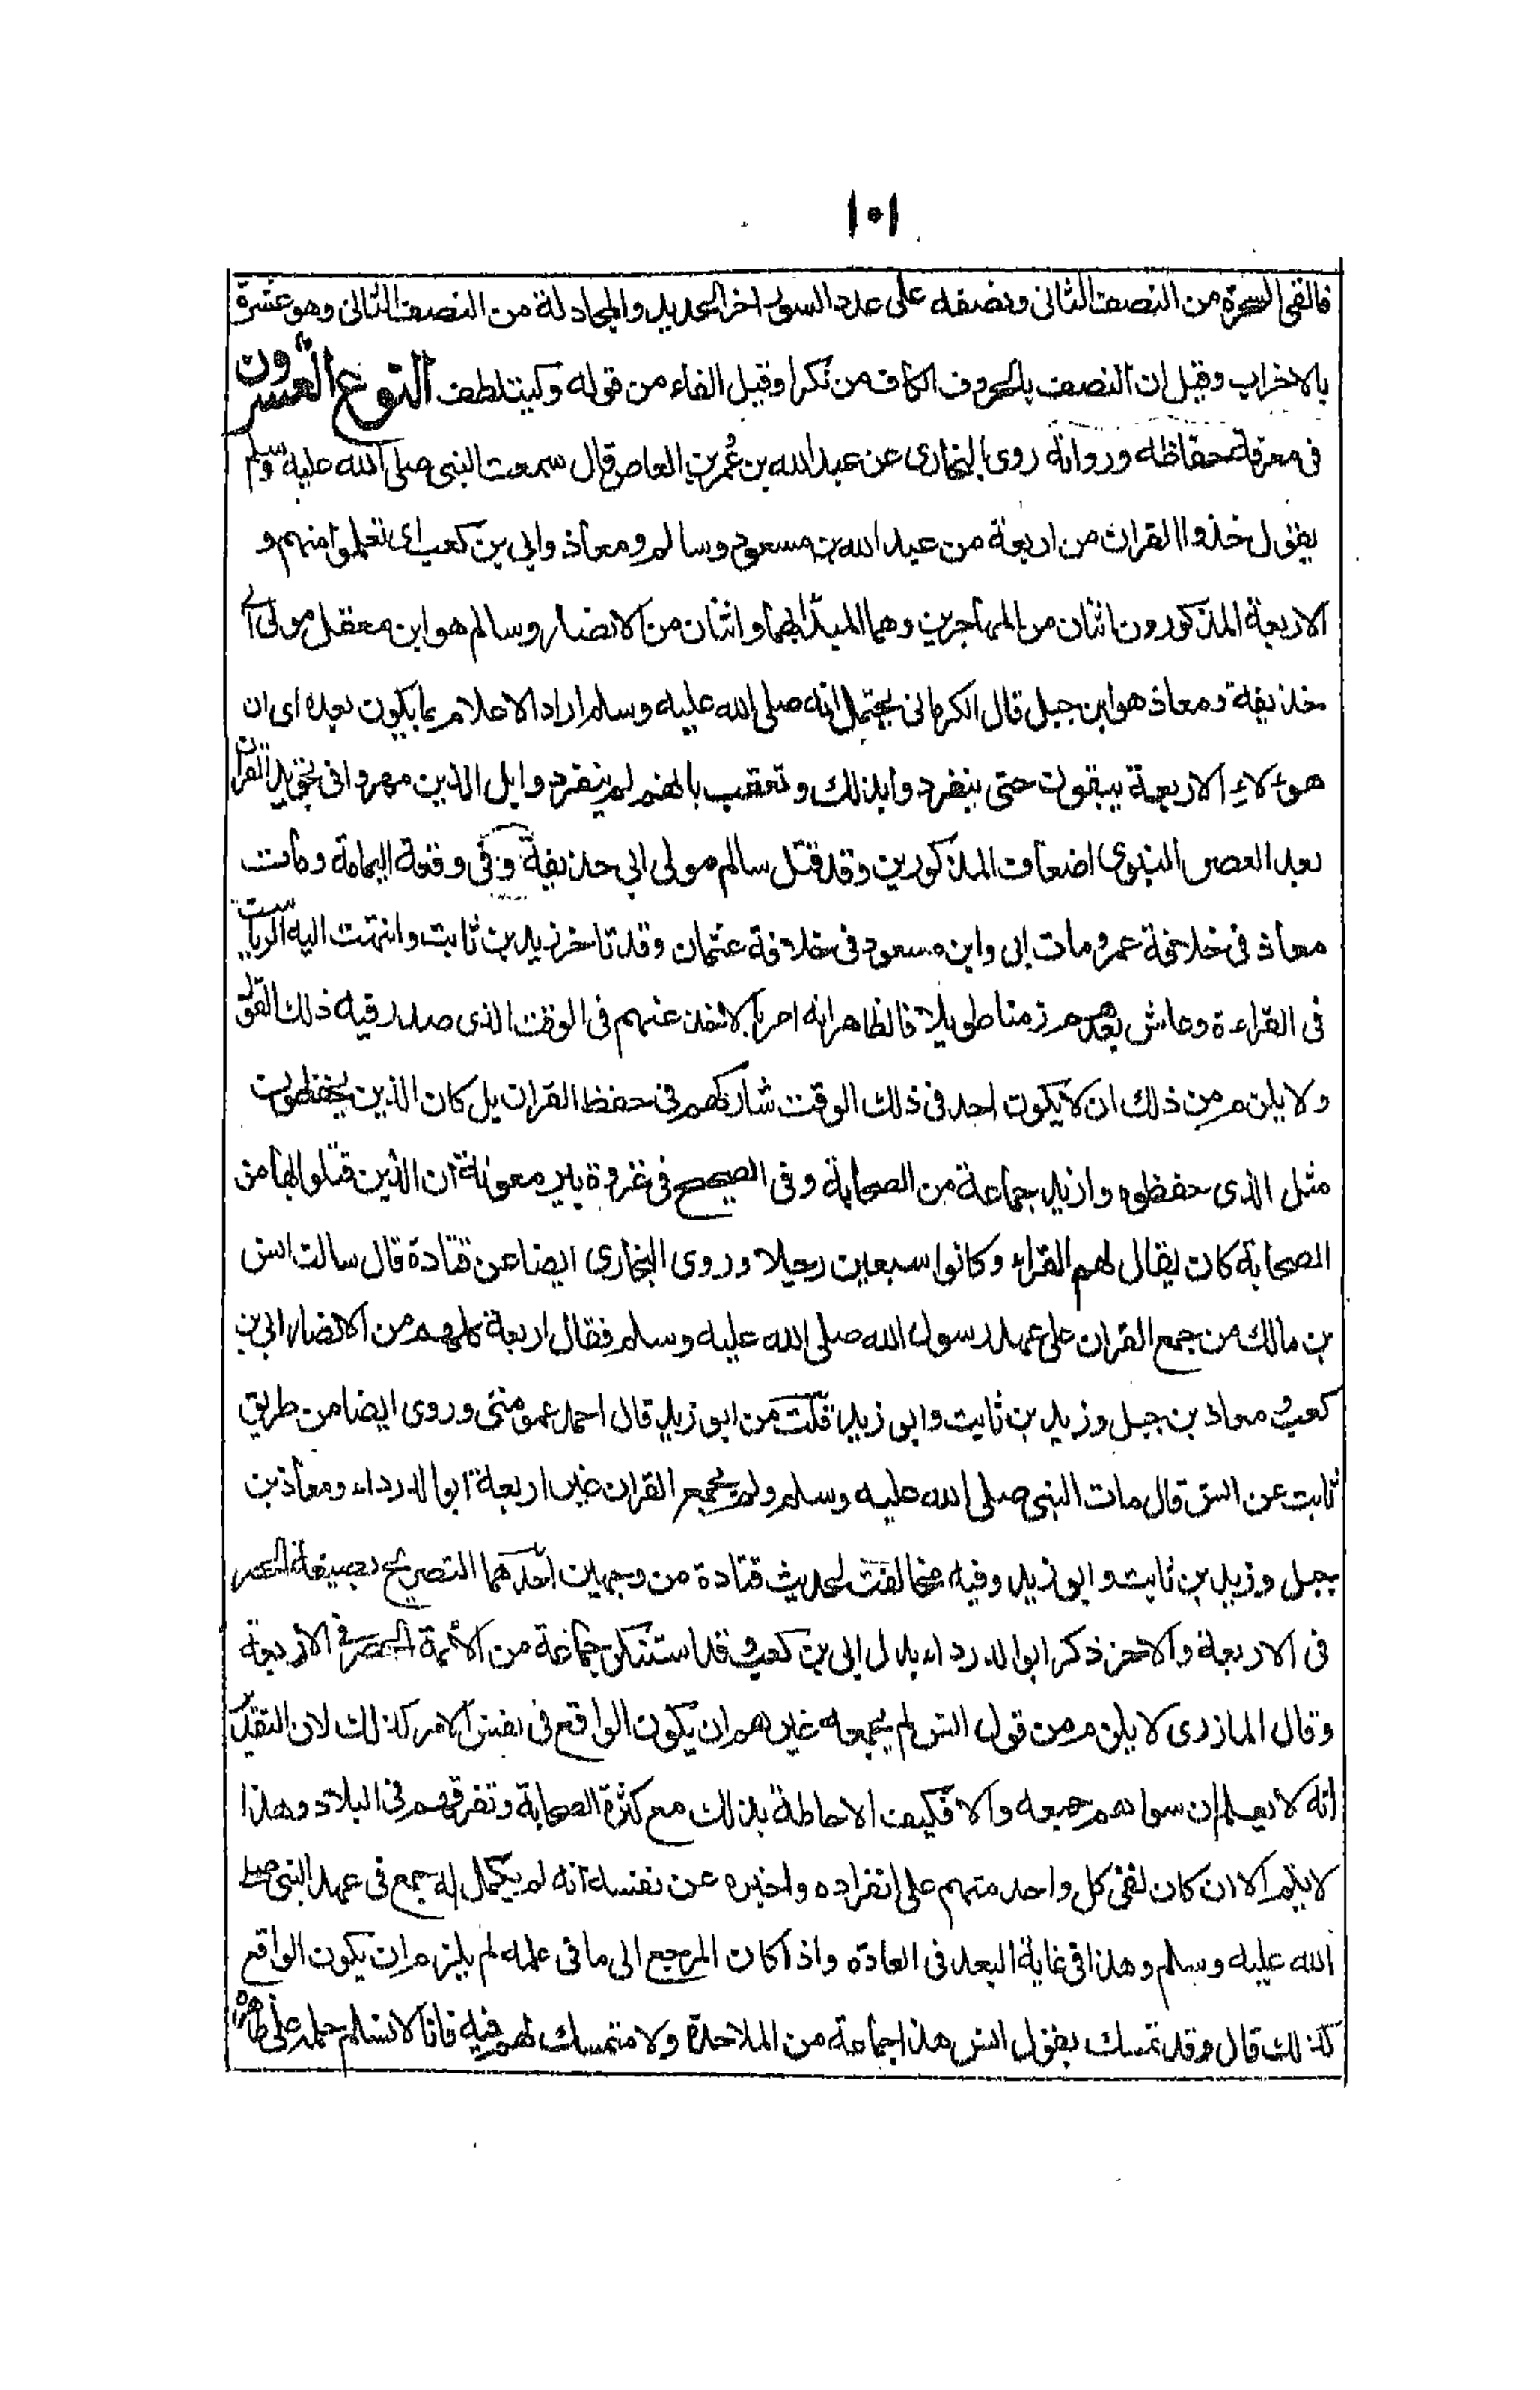 ١٠١
فالقى السحرة من النصف الثانى ونصفه على عدد السور اخر الحديد والمجادلة من النصف الثانى وهو عشرة
بالاحزاب وقيل ان النصف بالحروف الكاف من نكرا وقيل الفاء من قوله وليتلطف النوع العشرون
فى معرفة حفاظه ورواته روى البخارى عن عبد الله بن عمرو بن العاص قال سمعت النبى صلى الله عليه وسلم
يقول خذوا القران من اربعة من عبد الله بن مسعود وسالم ومعاذ وابى بن كعب اى تعلموا منهم و
الاربعة المذكورون اثنان من المهاجرين وهما المبدأ بهما واثنان من الانصار وسالم هو ابن معقل مولى ابى
حذيفة ومعاذ هو ابن جبل قال الكرمانى يحتمل انه صلى الله عليه وسلم اراد الاعلام بما يكون بعده اى ان
هؤلاء الاربعة يبقون حتى ينفردوا بذلك وتعقب بانهم لم ينفردوا بل الذين مهروا فى تجويد القران
بعد العصر النبوى اضعاف المذكورين وقد قتل سالم مولى ابى حذيفة فى وقعة اليمامة ومات
معاذ فى خلافة عمر ومات ابى وابن مسعود فى خلافة عثمان وقد تاخر زيد بن ثابت وانتهت اليه الرياست
فى القراءة وعاش بعدهم زمنا طويلا فالظاهر انه امر بالاخذ عنهم فى الوقت الذى صدر فيه ذلك القول
ولا يلزم من ذلك ان لا يكون احد فى ذلك الوقت شاركهم فى حفظ القران بل كان الذين يحفظون
مثل الذى حفظوه وازيد جماعة من الصحابة وفى الصحيح فى غزوة بير معونة ان الذين قتلوا بها من
الصحابة كان يقال لهم القراء وكانوا سبعين رجلا وروى البخارى ايضا عن قتادة قال سالت انس
بن مالك من جمع القران على عهد رسول الله صلى الله عليه وسلم فقال اربعة كلهم من الانصار ابى بن
كعب ومعاذ بن جبل وزيد بن ثابت وابو زيد قلت من ابو زيد قال احد عمومتى وروى ايضا من طريق
ثابت عن انس قال مات النبى صلى الله عليه وسلم ولم يجمع القران غير اربعة ابو الدرداء ومعاذ بن
جبل وزيد بن ثابت وابو زيد وفيه مخالفت لحديث قتادة من وجهين احدهما التصريح بصيغة الحصر
فى الاربعة والاخر ذكر ابو الدرداء بدل ابى بن كعب وقد استنكر جماعة من الائمة الحصر فى الاربعة
وقال المازرى لا يلزم من قول انس لم يجمعه غيرهم ان يكون الواقع فى نفس الامر كذلك لان التقدير
انه لا يعلم ان سواهم جمعه والا فكيف الاحاطة بذلك مع كثرة الصحابة وتفرقهم فى البلاد وهذا
لا يتم الا ان كان لقى كل واحد منهم على انفراده واخبره عن نفسه انه لم يكمل له جمع فى عهد النبى صلى
الله عليه وسلم وهذا فى غاية البعد فى العادة واذا كان المرجع الى ما فى علمه لم يلزم ان يكون الواقع
كذلك قال وقد تمسك بقول انس هذا جماعة من الملاحدة ولا متمسك لهم فيه فانا لا نسلم حمله على ظاهره